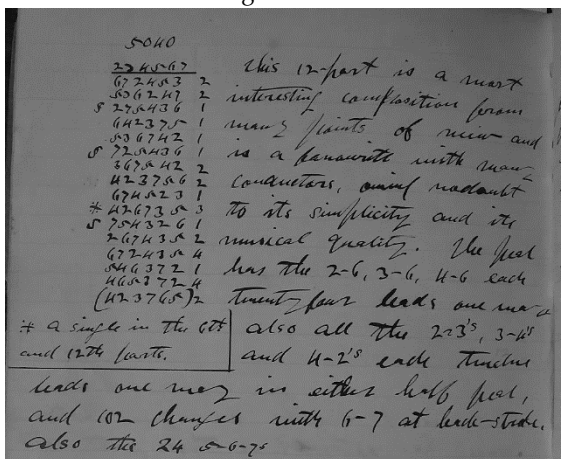 5040
234567
672453 2
536247 2
S 275436 1
642375 1
536742 1
S 725436 1
367542 2
423756 2
674523 1
* 426735 3
S 754326 1
267435 2
672435 4
546372 1
465372 4
(423765)2
* a single in the 6th
and 12th parts.
This 12-part is a most
interesting composition from
many points of view and
is a favourite with many
conductors, owing no doubt
to its simplicity and its
musical quality. The peal
has the 2-6, 3-6, 4-6 each
twenty four leads one way
also all the 2-3's, 3-4's
and 4-2's each twelve
leads one way in either half peal,
and 102 changes with 6-7 at back-stroke,
also the 24 5-6-7s